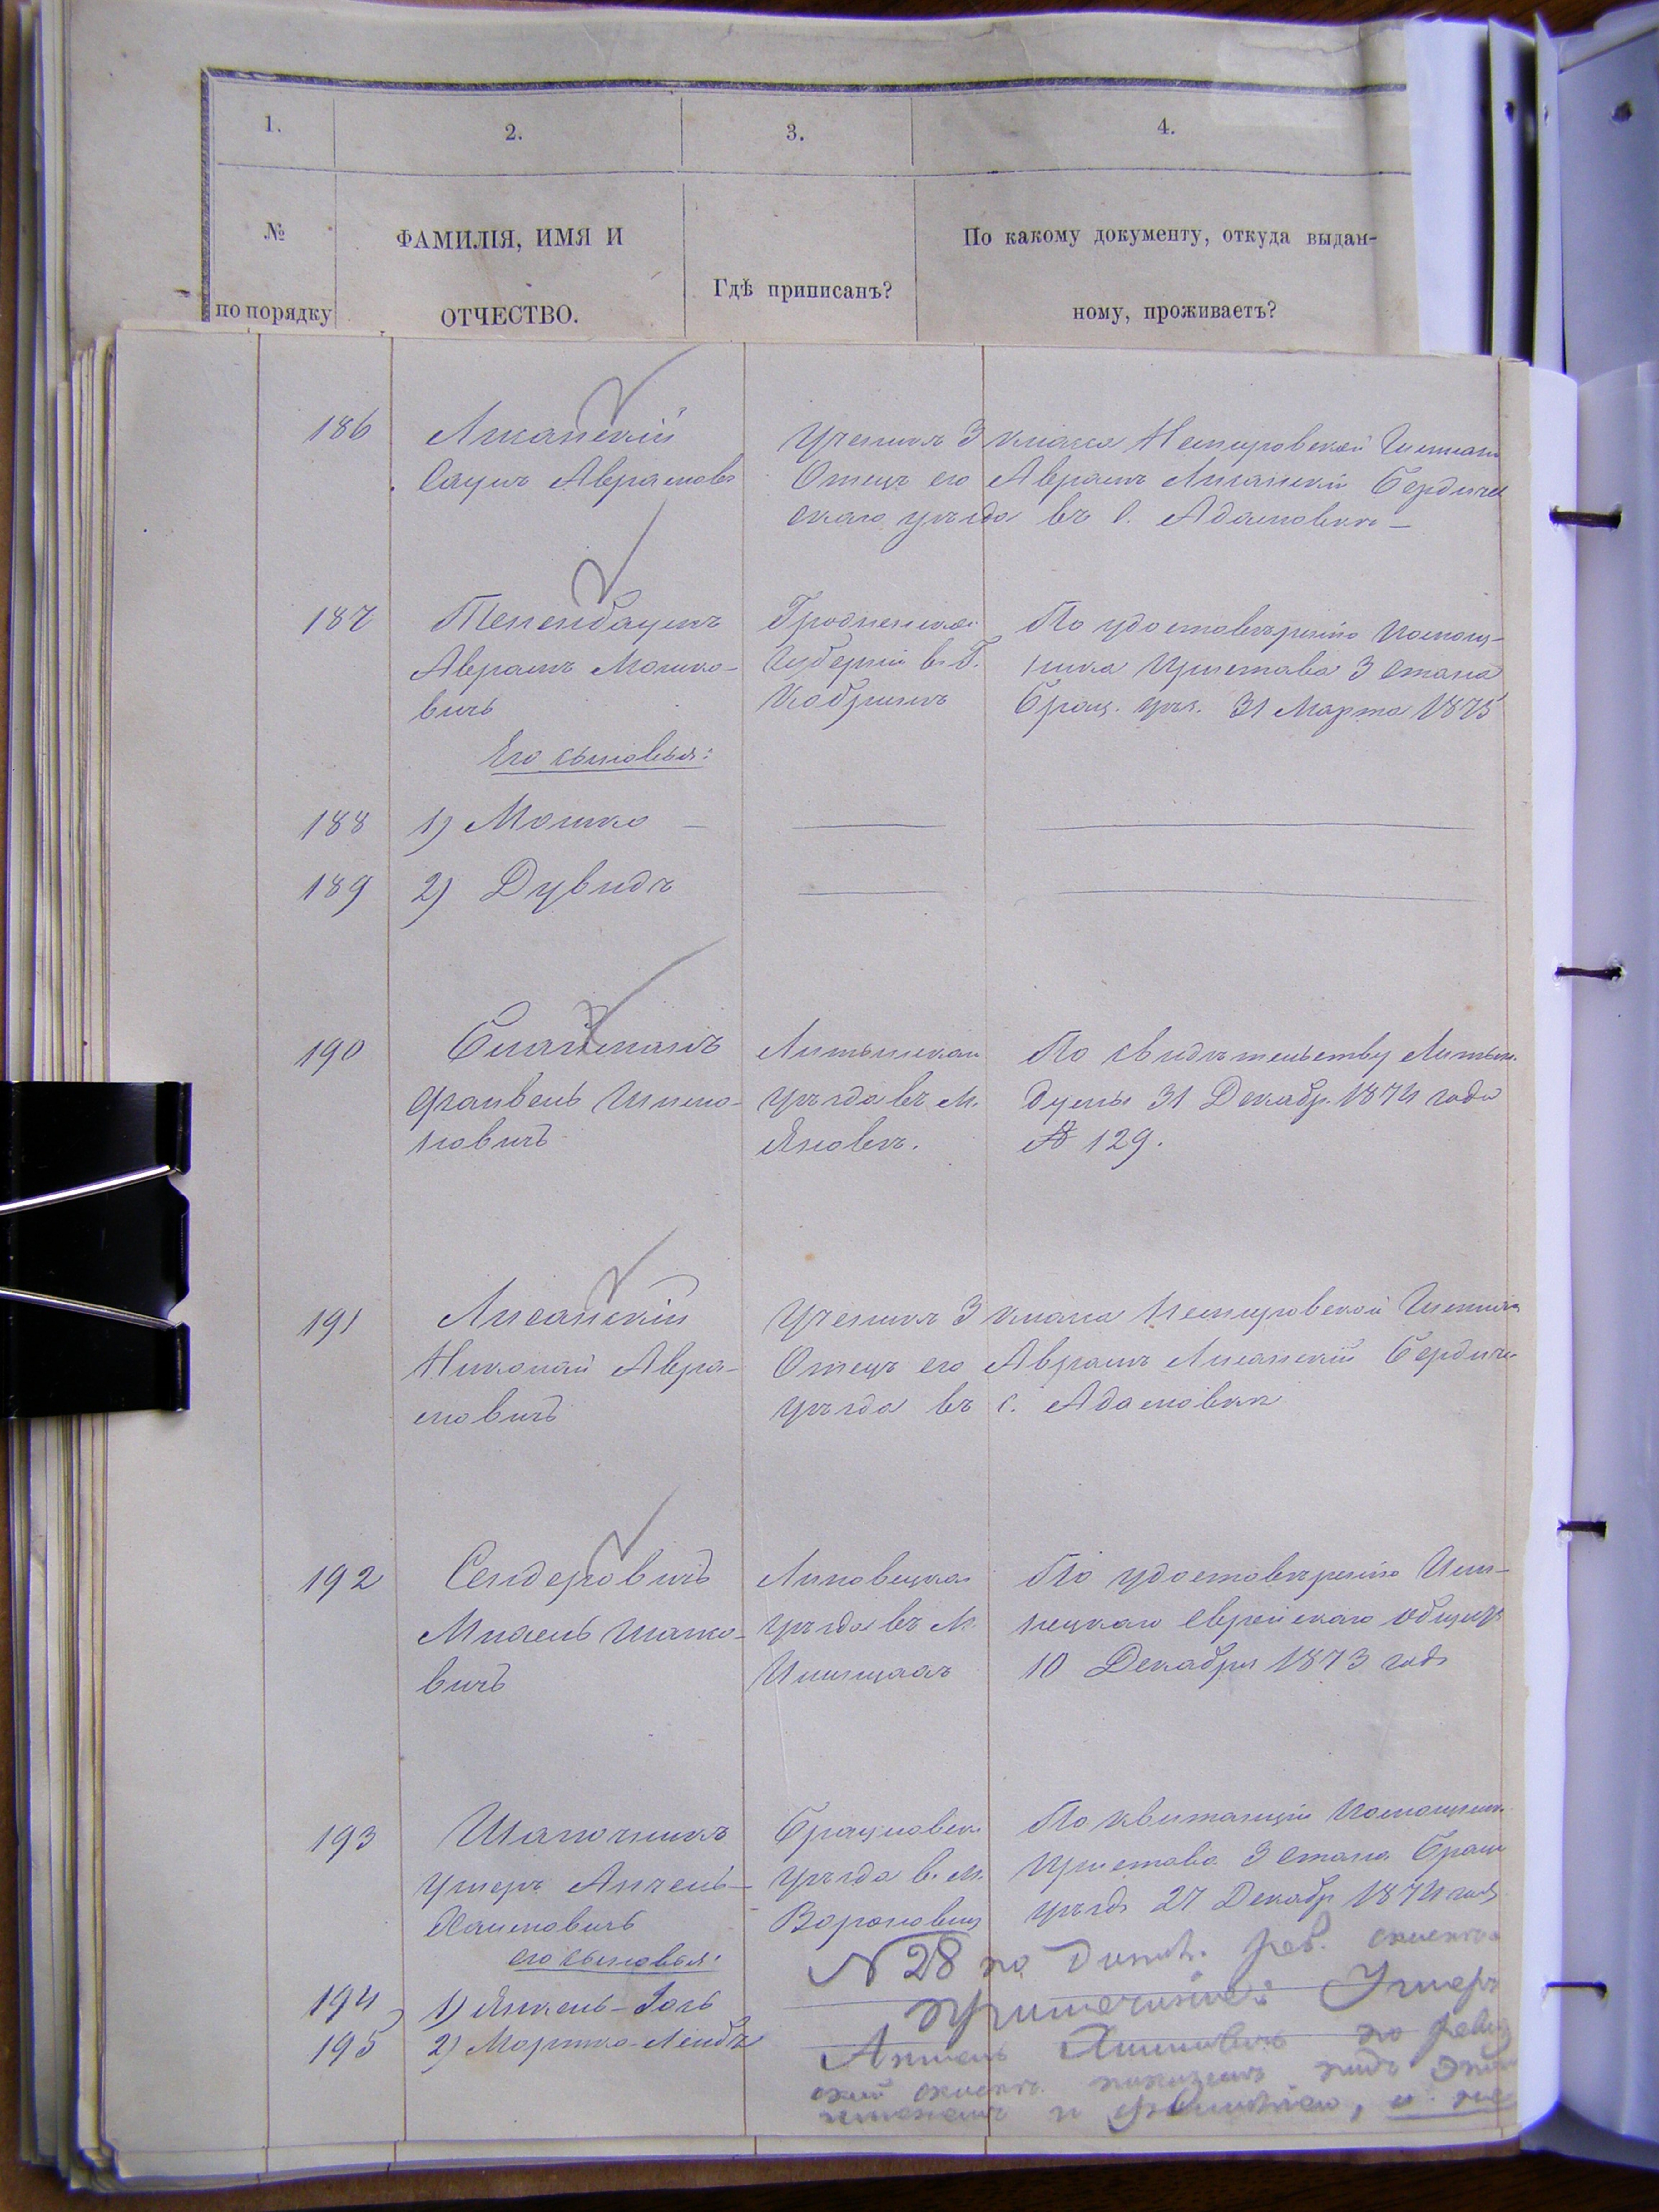 1.
2.
3.
4.
№
по порядку
ФАМИЛІЯ, ИМЯ И
ОТЧЕСТВО.
Гдѣ приписанъ?
По какому документу, откуда выдан-
ному, проживаетъ?
186
Лисанскій
Сауль Аврамовъ
Ученикъ 3 класса Немировской Гимназ
Отецъ его Аврамъ Лисанскій Бердичев
скаго уѣзда въ с. Адамовкѣ —
187
Тененбаумъ
Аврамъ Мошко-
вичъ
Гродненской
Губерніи въ Г.
Кобринѣ
По удостовѣренію помощ-
ника Пристава 3 стана
Брац. уѣз. 31 Марта 1875
Его сыновья:
188
1) Мошко —
189
2) Дувидъ
190
Файвель
новичъ
Литынскаго
уѣзда въ м.
Яновѣ.
По свидѣтельству Литын.
Думы 31 Декабр. 1874 года
№ 129.
191
Лисанскій
Николай Авра-
мовичъ
Ученикъ 3 класса Немировской Гимназ
Отецъ его Аврамъ Лисанскій Бердич
уѣзда въ с. Адамовкѣ
192
Сендеровичъ
Михель
вичъ
Липовецкаго
уѣзда въ м.
Ильинцахъ
По удостовѣренію Ильи-
нецкаго Еврейскаго общест
10 Декабря 1873 года
193
Шапочникъ
Умеръ Анчель-
Хаимовичъ
его сыновья:
Брацлавск.
уѣзда в. м.
Вороновиц
По квитанціи Помощник
Пристава 3 стана Брацл
уѣзда 27 Декабр 1874 года
194
1) Янкель-
195
2) Лейбъ
N 28 по рев.
примечаніе: Умеръ
по
и фамиліею, и не